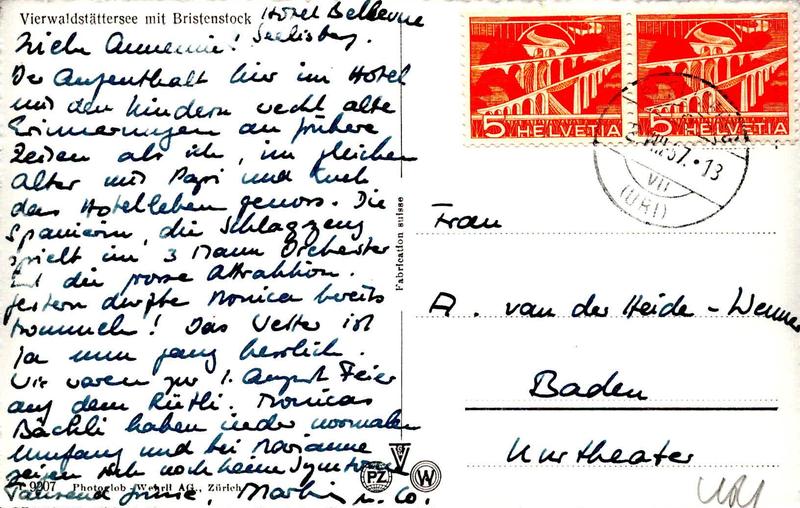 Vierwaldstättersee mit Bristenstock
Hotel Bellevue
Seelisberg.
Liebe Annemie!
Der Aufenthalt hier im Hotel
mit den Kindern weckt alte
Erinnerungen an frühere
Zeiten als ich, im gleichen
Alter mit Papi und Euch
das Hotelleben genoss. Die
Spanierin, die Schlagzeug
spielt im 3 Mann Orchester
ist die grosse Attraktion.
Gestern durfte Monica bereits
trommeln! Das Wetter ist
ja nun ganz herrlich.
Wir waren zur 1. August Feier
auf dem Rütli. Monicas
Bäckli haben wieder normalen
Umfang und bei Marianne
zeigen sich noch keine Symptome
Tausend Grüsse, u. Co.
9207 Photoglob-Wehrli AG., Zürich
Fabrication suisse
PZ
W
5 HELVETIA
5 HELVETIA
VIII 57.-13
VII
(URI)
Frau
A. van der Heide-Wenner
Baden
Kurtheater